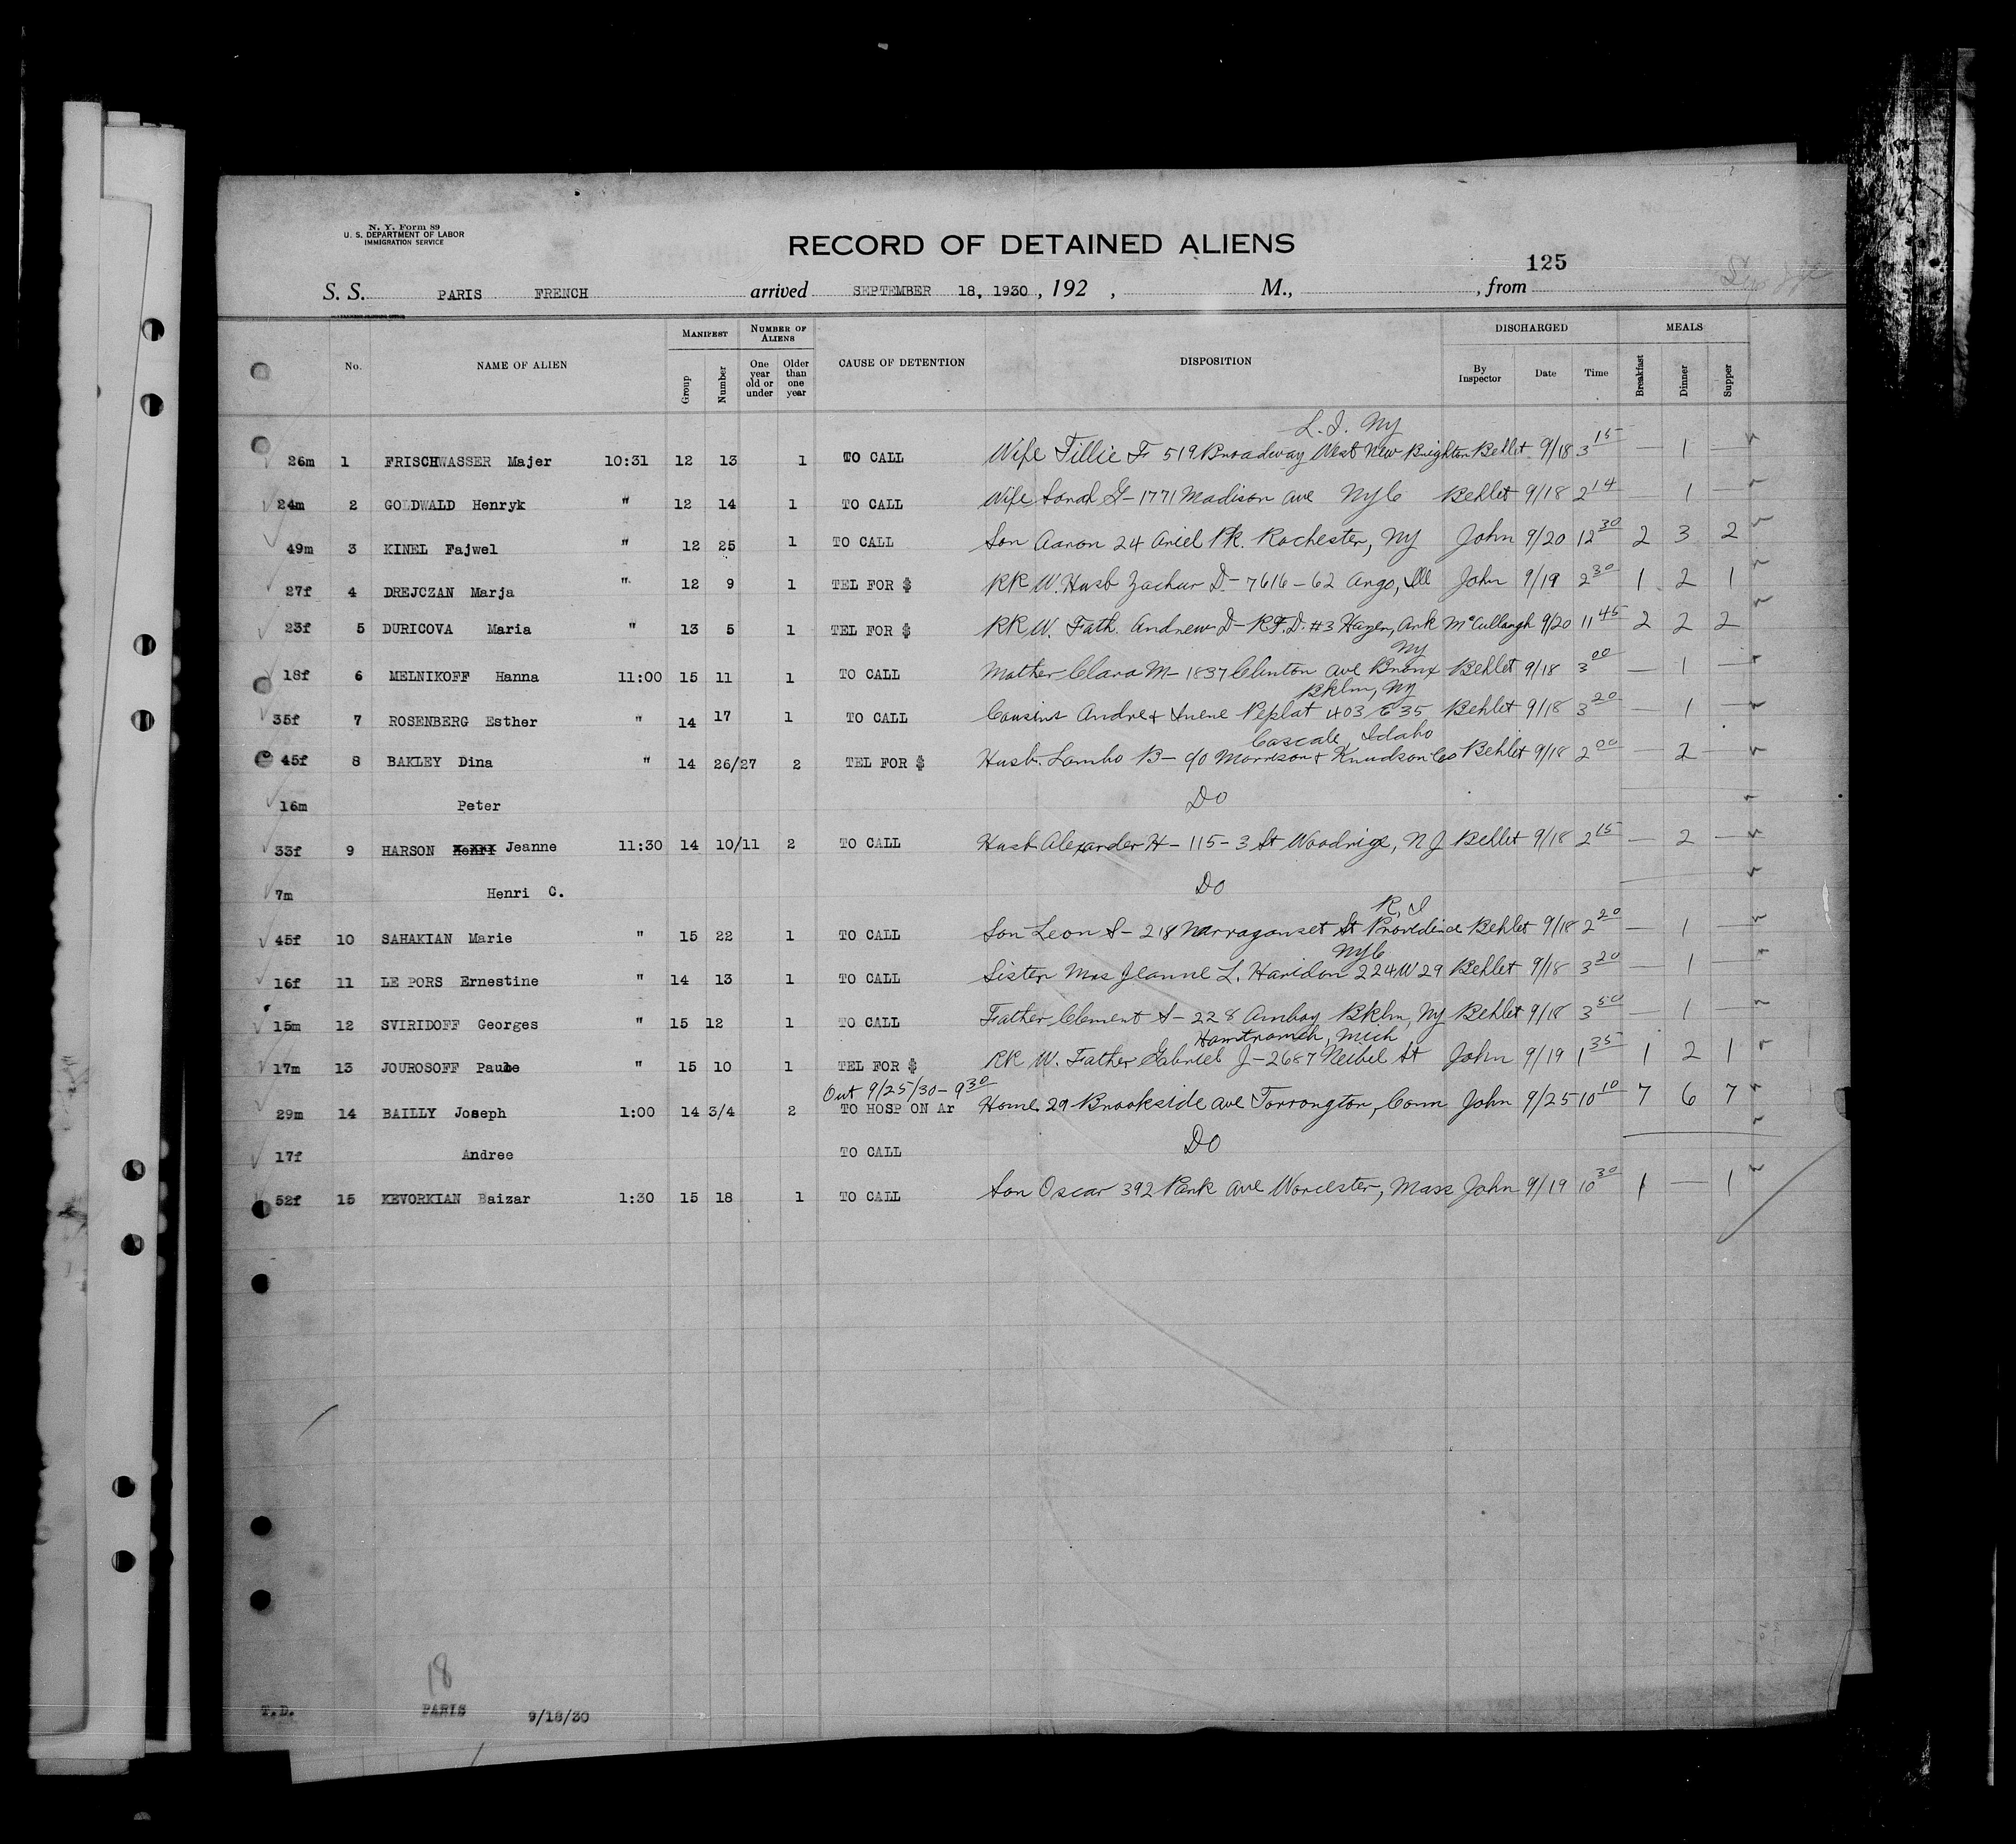 N. Y. Form 89
U. S. DEPARTMENT OF LABOR
IMMIGRATION SERVICE
RECORD OF DETAINED ALIENS
125
S. S. PARIS FRENCH arrived SEPTEMBER 18, 1930, 192 , M., , from
No. NAME OF ALIEN MANIFEST Group Number NUMBER OF ALIENS One year old or under Older than one year CAUSE OF DETENTION DISPOSITION DISCHARGED By Inspector Date Time MEALS Breakfast Dinner Supper
L. I. NY
26m 1 FRISCHWASSER Majer 10:31 12 13 1 TO CALL Wife Tillie F 519 Broadway West New Brighton Behlet 9/18 3 15 — 1 —
24m 2 GOLDWALD Henryk " 12 14 1 TO CALL Wife Sarah G- 1771 Madison Ave NYC Behlet 9/18 2 14 — 1 —
49m 3 KINEL Fajwel " 12 25 1 TO CALL Son Aaron 24 Ariel Pk. Rochester, NY John 9/20 12 30 2 3 2
27f 4 DREJCZAN Marja " 12 9 1 TEL FOR $ RR W. Husb Zachur D- 7616-62 Argo, Ill John 9/19 2 30 1 2 1
23f 5 DURICOVA Maria " 13 5 1 TEL FOR $ RR W. Fath. Andrew D- R.F.D. #3 Hazen, Ark McCullough 9/20 11 45 2 2 2
NY
18f 6 MELNIKOFF Hanna 11:00 15 11 1 TO CALL Mother Clara M- 1837 Clinton Ave Bronx Behlet 9/18 3 00 — 1 —
Bklm, NY
35f 7 ROSENBERG Esther " 14 17 1 TO CALL Cousins Andre & Irene Peplat 1403 E 35 Behlet 9/18 3 20 — 1 —
Cascale, Idaho
45f 8 BAKLEY Dina " 14 26/27 2 TEL FOR $ Husb. Lambo B- c/o Morrison & Knudson Co Behlet 9/18 2 00 — 2 —
16m Peter DO
33f 9 HARSON Henri Jeanne 11:30 14 10/11 2 TO CALL Husb Alexander H- 115-3 St Woodrige, NJ Behlet 9/18 2 15 — 2 —
7m Henri C. DO
R. I
45f 10 SAHAKIAN Marie " 15 22 1 TO CALL Son Leon S- 218 Narraganset St Providence Behlet 9/18 2 20 — 1 —
NYC
16f 11 LE PORS Ernestine " 14 13 1 TO CALL Sister Mrs Jeanne L. Haridon 224 W 29 Behlet 9/18 3 20 — 1 —
15m 12 SVIRIDOFF Georges " 15 12 1 TO CALL Father Clement S- 228 Amboy Bklm, NY Behlet 9/18 3 50 — 1 —
Hamtramck, Mich
17m 13 JOUROSOFF Paule " 15 10 1 TEL FOR $ RR W. Father Gabriel J- 2687 Neibel St John 9/19 1 35 1 2 1
Out 9/25/30- 9 30
29m 14 BAILLY Joseph 1:00 14 3/4 2 TO HOSP ON Ar Home 29 Brookside Ave Torrington, Conn John 9/25 10 10 7 6 7
17f Andree TO CALL DO
52f 15 KEVORKIAN Baizar 1:30 15 18 1 TO CALL Son Oscar 392 Park Ave Worcester, Mass John 9/19 10 30 1 — 1
18
T.D. PARIS 9/18/30